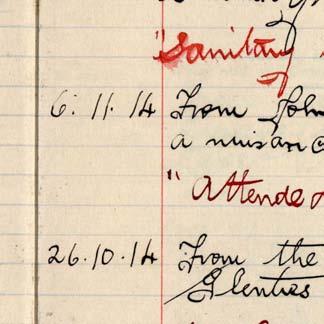 "Sanitary
6.11.14 From John
a nuisanc
"Attended
26.10.14 From the
Glenties